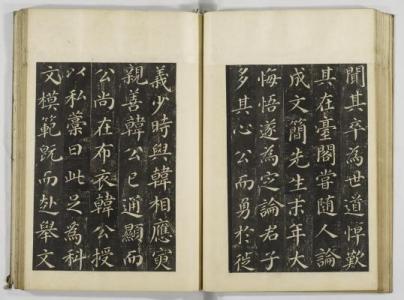 聞其卒為世道悼歎
其在臺閣嘗随人論
成文簡先生末年大
悔悟遂為定論君子
多其心公而勇於徙
義少時與韓相應寅
親善韓公已通顯而
公尚在布衣韓公授
以私藁曰此足為科
文模範既而赴舉文